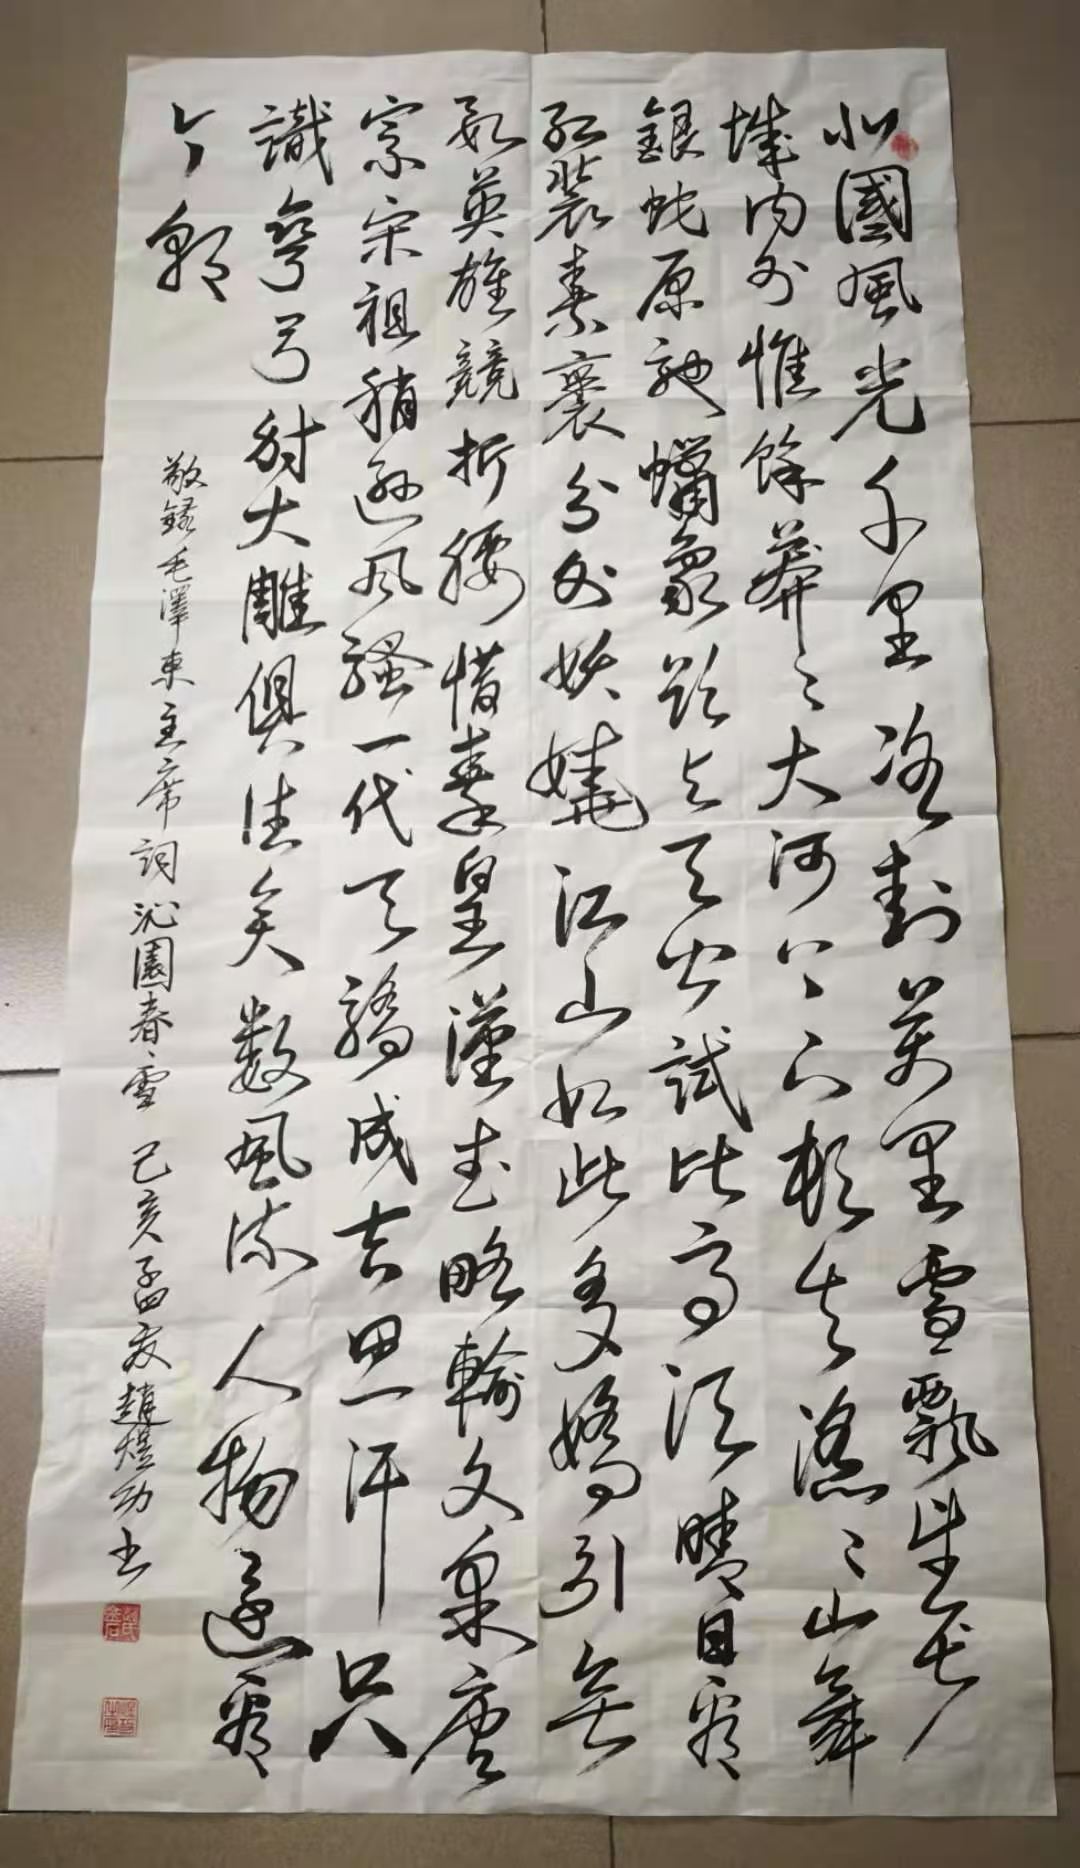 北國風光千里冰封萬里雪飄望長
城内外惟餘莽々大河上下頓失滔々山舞
銀蛇原馳蠟象欲與天公試比高須晴日看
紅裝素裹分外妖嬈江山如此多嬌引無
數英雄競折腰惜秦皇漢武略輸文采唐
宗宋祖稍遜風騷一代天驕成吉思汗只
識彎弓射大雕俱往矣数風流人物還看
今朝
敬錄毛澤東主席詞沁園春雪 己亥孟夏趙煜功书